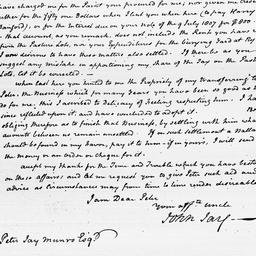 have charged me for the Paint you procured for me; nor given me credit
either for the fifty one Dollars which I left you when here (to pay Harry
Hansford), or for the Interest due on your Note of the 9 July 1807 for $800
that account, as you remark, does not include the Rent you have received
from the Pasture Lot, nor your Expenditures for the bringing Suit at
I am desirous to have these matters also settled. If there be as you
suggest any mistake in apportioning my share of the Tax on the Pasture
Lots, let it be corrected.
when last here you hinted to me the Propriety of my transferring to
Peter the Business which for many Years you have been so good as to
do for me. This I ascribed to Delicacy of Feeling respecting him. I have
since reflected upon it, and have concluded to adopt it. Be so
obliging therefore as to finish that Business, by settling with him what
accounts between us remain unsettled. If on such settlement a Ballance
should be found in my favor, pay it to him. if in yours, I will send
the money or an order or cheque for it.
accept my thanks for the Time and Trouble which you have bestowed
on these affairs and let me request you to give Peter such aid and
advice as Circumstances may from time to time render desirable
I am Dear Peter
Your affte uncle
John Jay
Peter Jay Munro Esqr